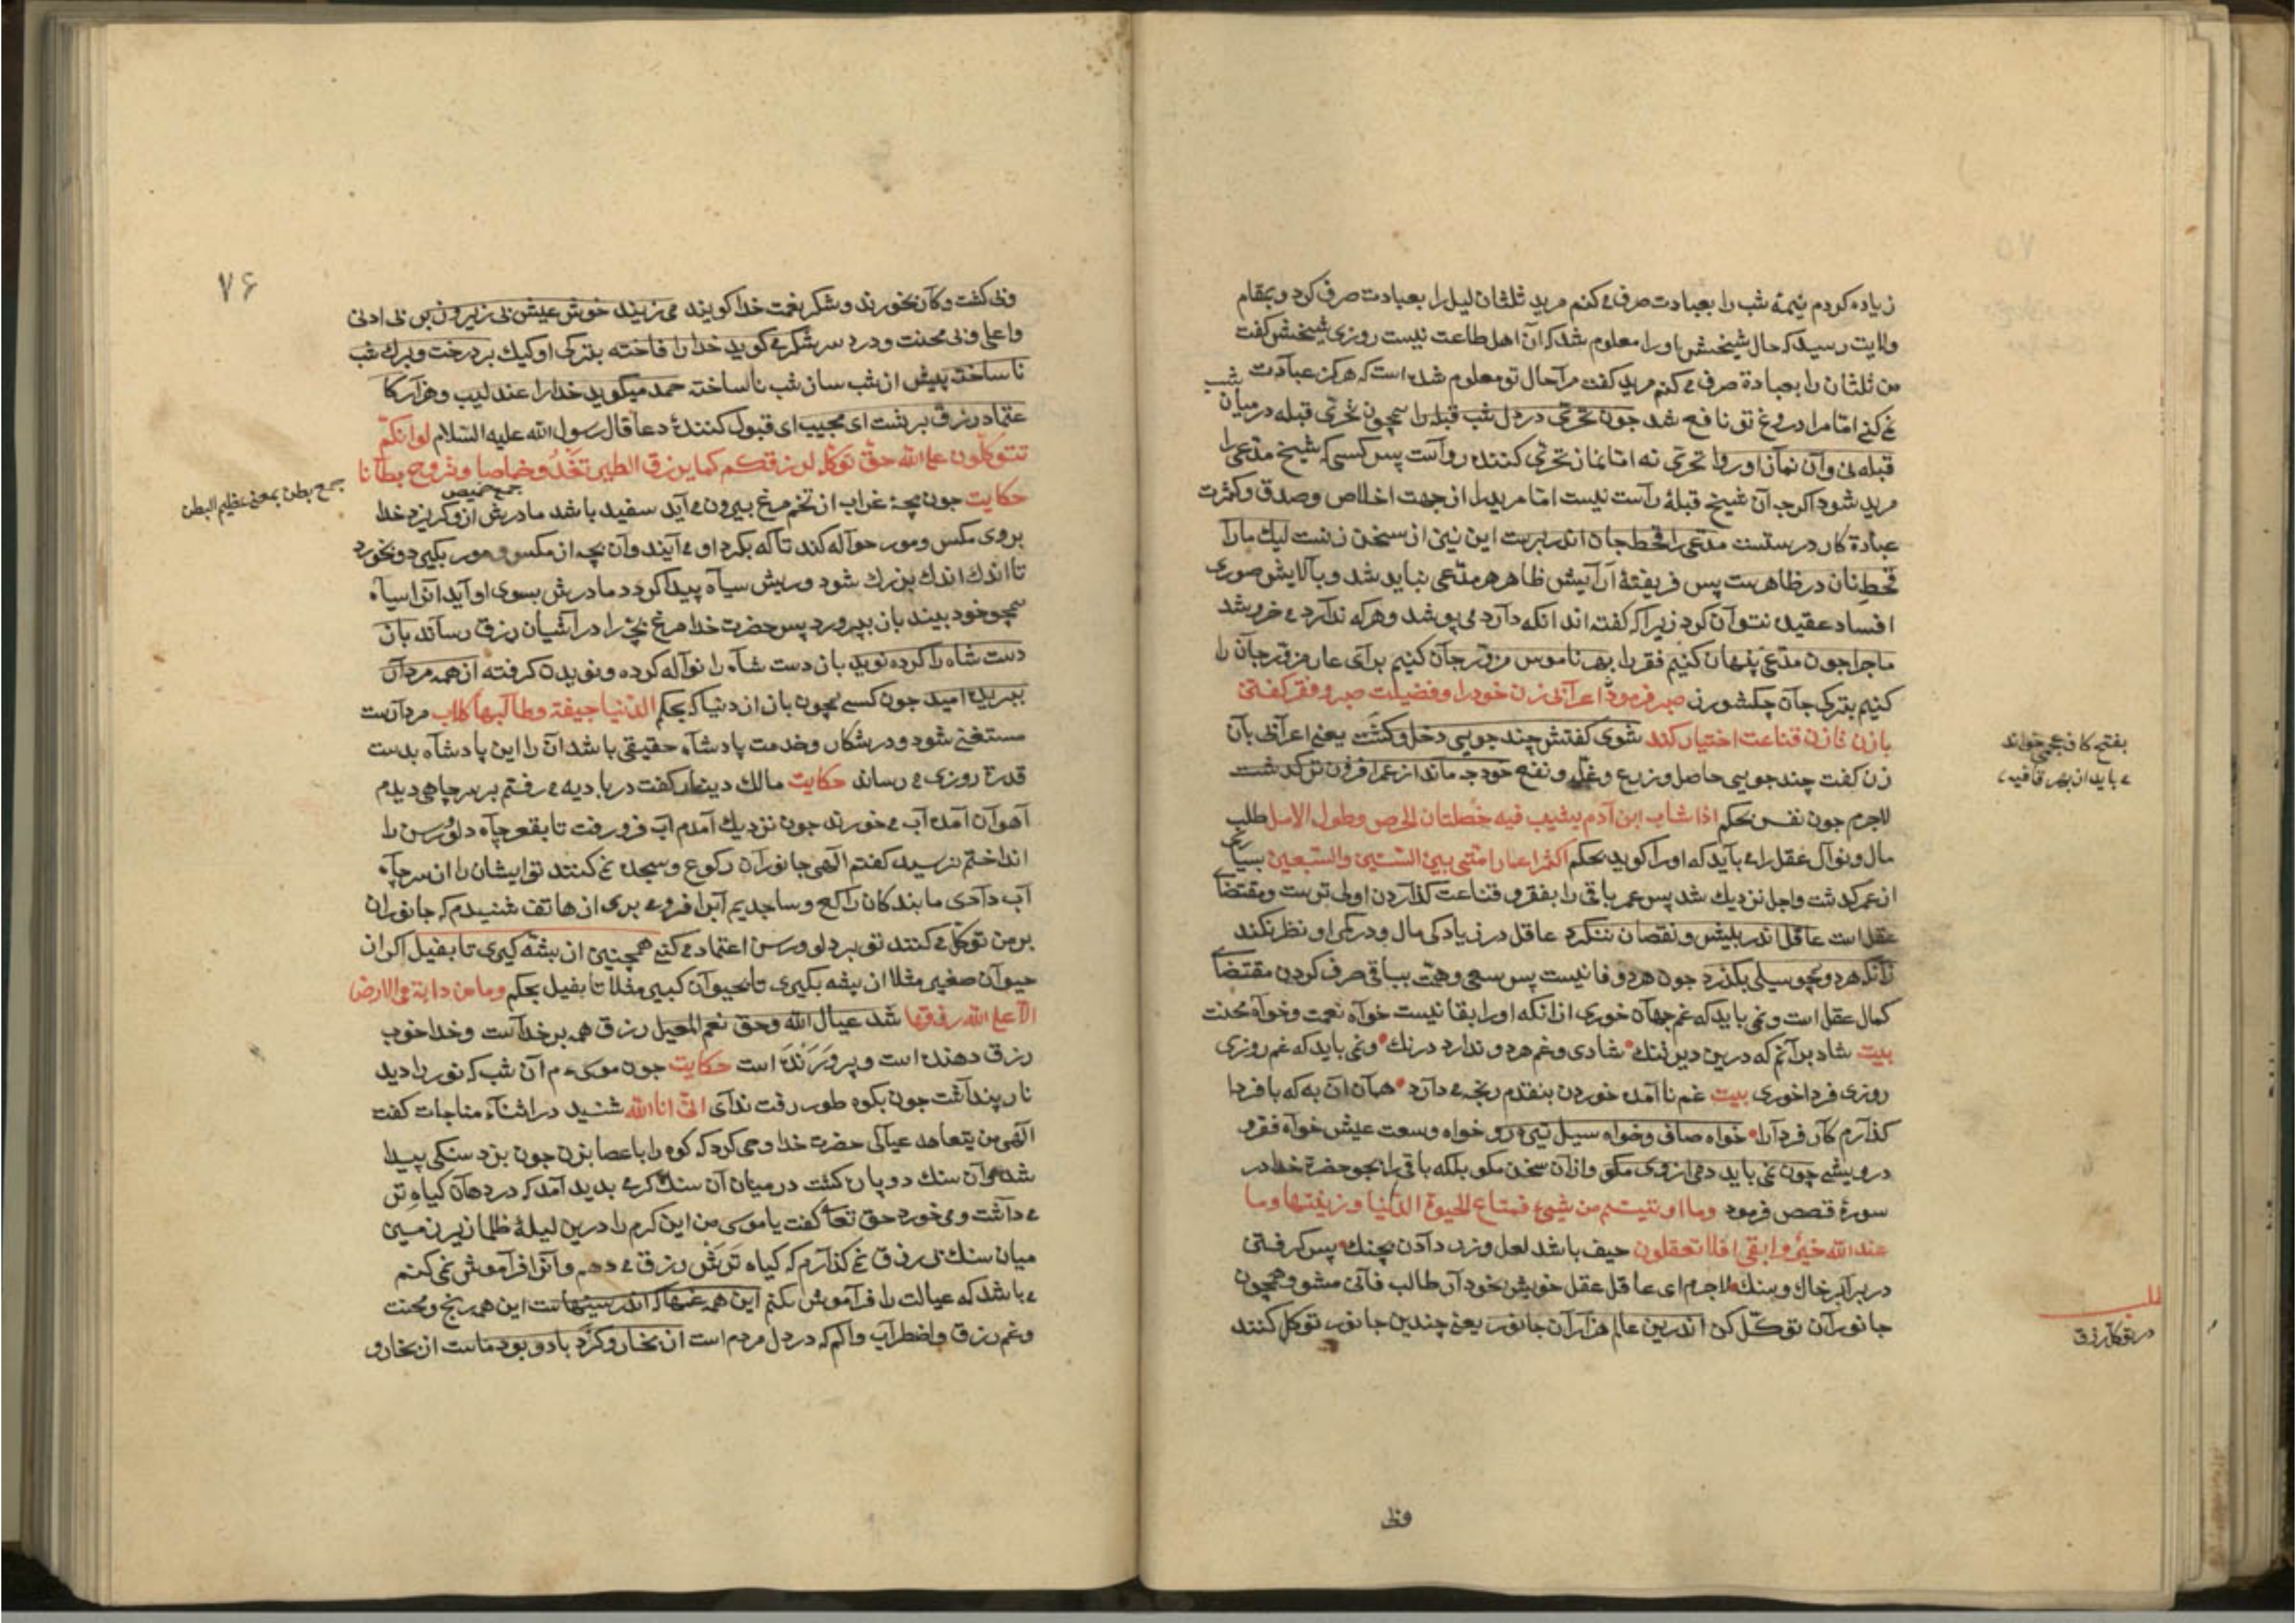 زیاده کردم نیمهٔ شب را بعبادت صرف می کنم مرید ثلثان لیل را بعبادت صرف کرد و بمقام
ولایت رسید که حال شیخش اورا معلوم شد که آن اهل طاعت نیست روزی شیخش کفت
من ثلثان را بعبادة صرف می کنم مرید کفت مرا حال تو معلوم شده است که هرکز عبادت شب
نمی کنی امّا مرا دروغ تو نافع شد جون تحرّی در دل شب قبله را همچون تحرّی قبله در میان شب
قبله نی وآن نماز اوروا تحرّی نه امّا نماز تحرّی کننده رواست پس کسی که شیخ مدّعی را
مرید شود اکرجه آن شیخ قبلهٔ راست نیست امّا مرید را از جهت اخلاص وصدق وکثرت
عبادة کار درستست مدّعی را قحط جان اندر برست این نیز از سخن زنست لیك مارا
قحط نان در ظاهرست پس فریفتهٔ آرایش ظاهر هر مدّعی نباید شد وبآلایش صوری
افساد عقیده نتوان کرد زیرا که کفته اند انکه دارد می پوشد وهرکه ندارد می خروشد
ماجرا جون مدّعی پنهان کنیم فقر را بهر ناموس مزوّر جان کنیم برای عار مزوّر جان را
کنیم بترکی جان چکشورز صبر فرمودن اعرابی زن خود را وفضیلت صبر وفقر کفتن
بازن تا زن قناعت اختیار کند شوی کفتش چند جویی دخل وکشت یعنی اعرابی بآن
زن کفت چند جویی حاصل وزرع وغلّه ونفع خود جه ماند از عمر افزونتر کذشت
لاجرم جون نفس بحکم اذا شاب ابن آدم یشیب فیه خصلتان الحرص وطول الامل طلب
مال ونوال عقل را می باید که اورا کوید بحکم اکثر اعمار امّتی بین الستّین والسّبعین بسیاری
از عمر کذشت واجل نزدیك شد پس عمر باقی را بفقر وقناعت کذاردن اولی ترست ومقتضای
عقل است عاقل اندر بیش ونقصان ننکرد عاقل در زیادکی مال ودر کمی او نظر نکند
زانکه هر دو همچو سیلی بکذرد جون هر دو فانیست پس سعی وهمّت بباقی صرف کردن مقتضای
کمال عقل است ونمی باید که غم جهان خوری از انکه اورا بقا نیست خواه نعمت وخواه محنت
بیت شاد برانم که درین دیر تنك شادی وغم هر دو ندارد درنك ونمی باید که غم روزی
روزی فردا خوری بیت غم ناامده خوردن بنقدم رنجه می دارد همان به که با فردا
کذارم کار فردارا خواه صاف وخواه سیل تیره رو خواه وسعت عیش خواه فقر و
درویشی چون نمی باید دمی از وی مکو وازان سخن مکو بلکه باقی را بجو حضرة خدا در
سورهٔ قصص فرمود وما اوتیتم من شیئ فمتاع الحیوة الدّنیا وزینتها وما
عند الله خیر وابقی افلا تعقلون حیف باشد لعل وزر دادن بچنك پس کرفتن
در برابر خاك وسنك لاجرم ای عاقل عقل خویش بخود آر طالب فانی مشو وهمچون
جانوران توکّل کن اندرین عالم هزاران جانور یعنی چندین جانور توکّل کنند
بفتح کاف عجمی خواند
می باید از بهر قافیه
طلب
در توکل رزق
وظ
۷۶
وظ کشت وکان بخورند وشکر نعمت خدا کویند می زییند خوش عیش بی زیر وزبر بی ادنی
واعلی وبی محنت ودرد سر شکر می کوید خدا را فاخته بترکی اوکیك بر درخت وبرك شب
ناساخته پیش از شب ساز شب ناساخته حمد میکوید خدا را عندلیب وهزار کا
عتماد رزق برتست ای مجیب ای قبول کنندهٔ دعا قال رسول الله علیه السّلام لو انّکم
تتوکّلون علی الله حقّ توکّله لرزقکم کما یرزق الطیر تغدو خماصا وتروح بطانا
جمع خمیص
جمع بطن بمعنی عظیم البطن
حکایت جون بچهٔ غراب از تخم مرغ بیرون می آید سفید باشد مادرش ازو کریزد خدا
بروی مکس ومور حواله کند تا که بکرد او می آیند وآن بچه از مکس ومور بکیرد وبخورد
تا اندك اندك بزرك شود وریش سیاه پیدا کردد مادرش بسوی او آید انرا سیاه
همچو خود بیند بان بپرورد پس حضرت خدا مرغ بچه را در آشیان رزق رساند باز
دست شاه را کرده نوید باز دست شاه را نواله کرده ونویدن کرفته از همه مردار
ببریده امید جون کسی همچون باز از دنیا که بحکم الدّنیا جیفة وطالبها کلاب مردارست
مستغنی شود ودر شکار وخدمت پادشاه حقیقی باشد ان را این پادشاه بدست
قدرة روزی می رساند حکایت مالك دینار کفت در بادیه می رفتم بر سر چاهی دیدم
آهوان آمده آب می خوردند جون نزدیك آمدم آب فرو رفت تا بقعر چاه دلو ورسن را
انداختم نرسید کفتم الهی جانوران رکوع وسجده نمی کنند تو ایشان را از سر چاه
آب دادی ما بندکان راکع وساجدیم آبرا فرو می بری از هاتف شنیدم که جانوران
بر من توکّل می کنند تو بر دلو ورسن اعتماد می کنی همچنین از پشه کیری تا بفیل اکر از
حیوان صغیر مثلا از پشه بکیری تا بحیوان کبیر مثلا تا بفیل بحکم وما من دابّة فی الارض
الّا علی الله رزقها شد عیال الله وحق نعم المعیل رزق همه بر خداست وخدا خوب
رزق دهنده است وپرورنده است حکایت جون موسی م آن شب که نور را دید
نار پنداشت جون بکوه طور رفت ندای انّی انا الله شنید در اثناء مناجات کفت
الهی من یتعاهد عیالی حضرت خدا وحی کرد که کوه را با عصا بزن جون بزد سنکی پیدا
شد آن سنك دو پاره کشت در میان آن سنك کرمی بدید آمد که در دهان کیاه تر
می داشت ومی خورد حق تعا کفت یا موسی من این کرم را درین لیلهٔ ظلما زیر زمین
میان سنك بی رزق نمی کذارم که کیاه ترش رزق می دهم وآنرا فراموش نمی کنم
می باشد که عیالت را فراموش بکنم این همه غمها که اندر سینهاست این همه رنج ومحنت
وغم رزق واضطراب والم که در دل مردم است از بخار وکرد باد وبود ماست از بخار و